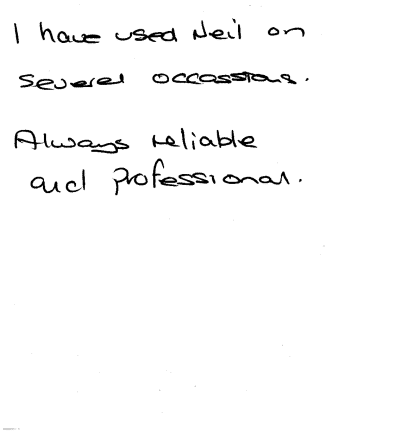 I have used Neil on
several occassions.
Always reliable
and professional.